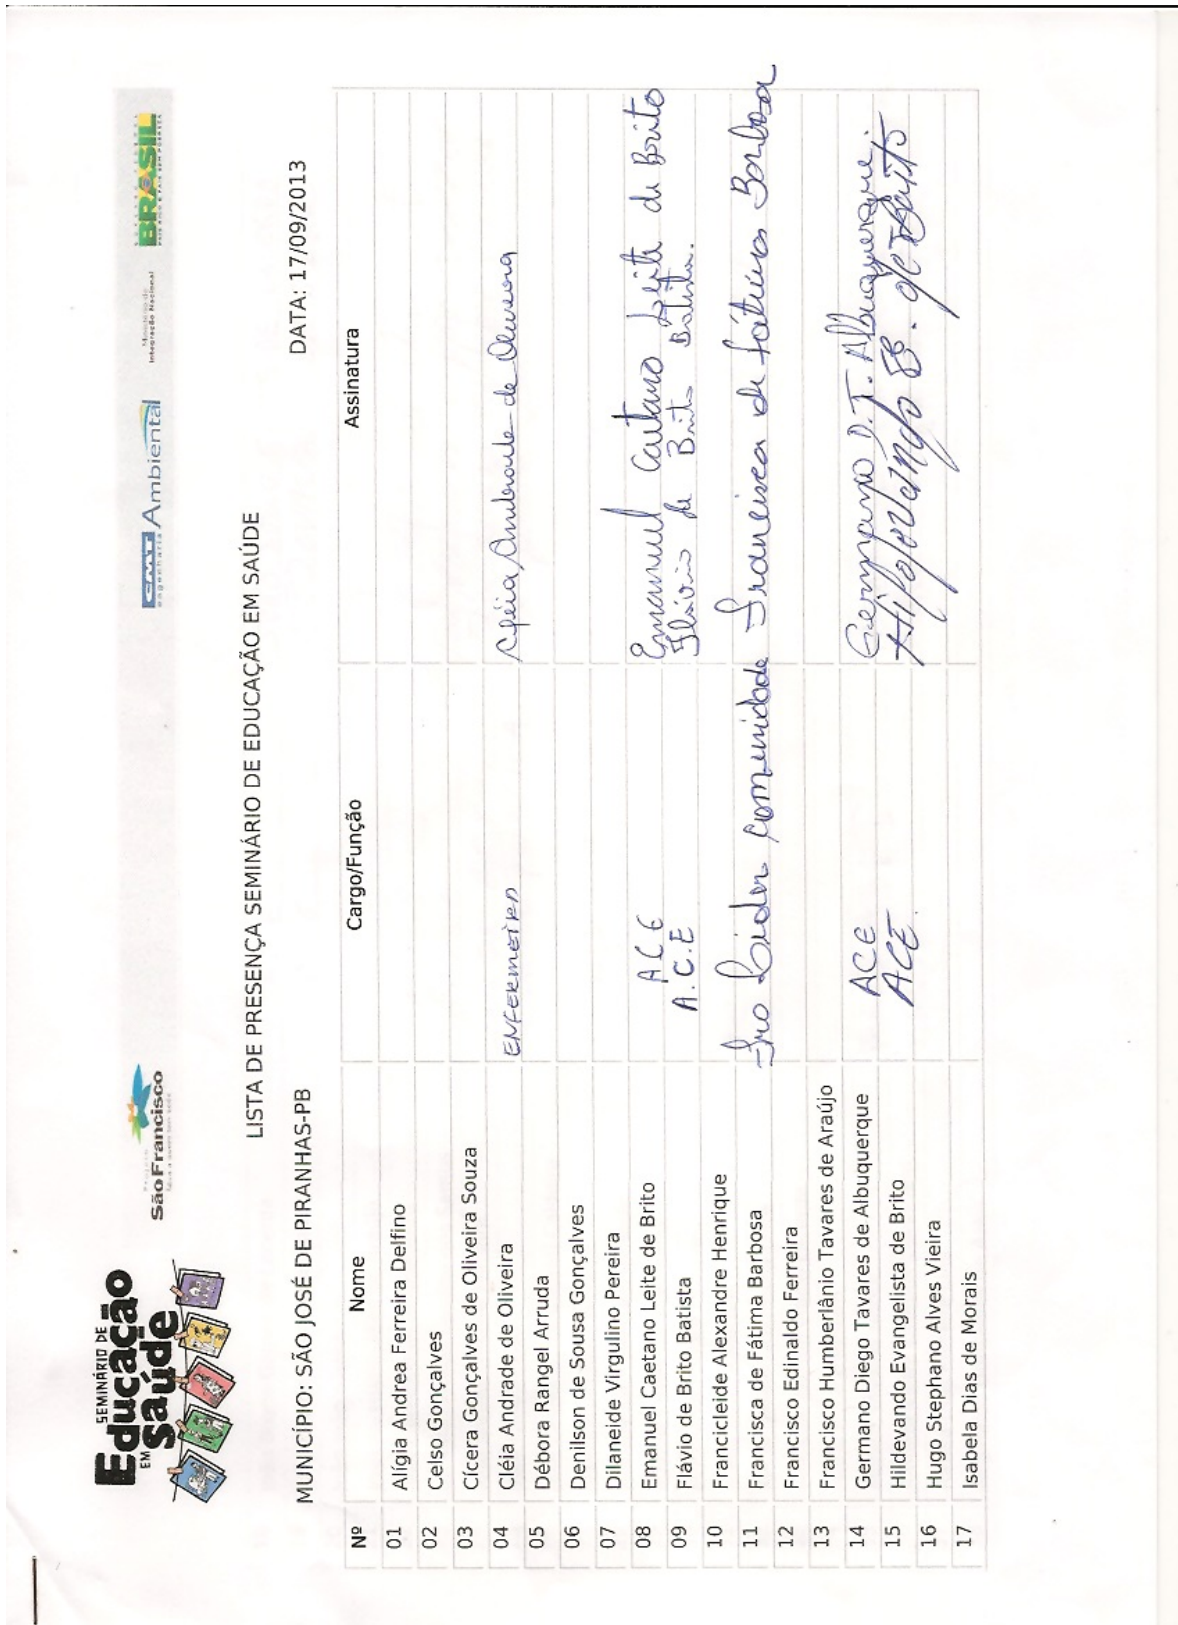 SEMINÁRIO DE
Educação
EM saúde
Projeto
São Francisco
CMT Ambiental
engenharia
Ministério da
Integração Nacional
GOVERNO FEDERAL
BRASIL
PAÍS RICO É PAÍS SEM POBREZA
LISTA DE PRESENÇA SEMINÁRIO DE EDUCAÇÃO EM SAÚDE
MUNICÍPIO: SÃO JOSÉ DE PIRANHAS-PB DATA: 17/09/2013
Nº Nome Cargo/Função Assinatura
01 Alígia Andrea Ferreira Delfino
02 Celso Gonçalves
03 Cícera Gonçalves de Oliveira Souza
04 Cléia Andrade de Oliveira ENFERMEIRA Cléia Andrade de Oliveira
05 Débora Rangel Arruda
06 Denilson de Sousa Gonçalves
07 Dilaneide Virgulino Pereira
08 Emanuel Caetano Leite de Brito ACE Emanuel Caetano Leite de Brito
09 Flávio de Brito Batista A.C.E Flávio de Brito Batista.
10 Francicleide Alexandre Henrique
11 Francisca de Fátima Barbosa Lider comunidade Francisca de Fátima Barbosa
12 Francisco Edinaldo Ferreira
13 Francisco Humberlânio Tavares de Araújo
14 Germano Diego Tavares de Albuquerque ACE Germano D. T. Albuquerque.
15 Hildevando Evangelista de Brito ACE
16 Hugo Stephano Alves Vieira
17 Isabela Dias de Morais